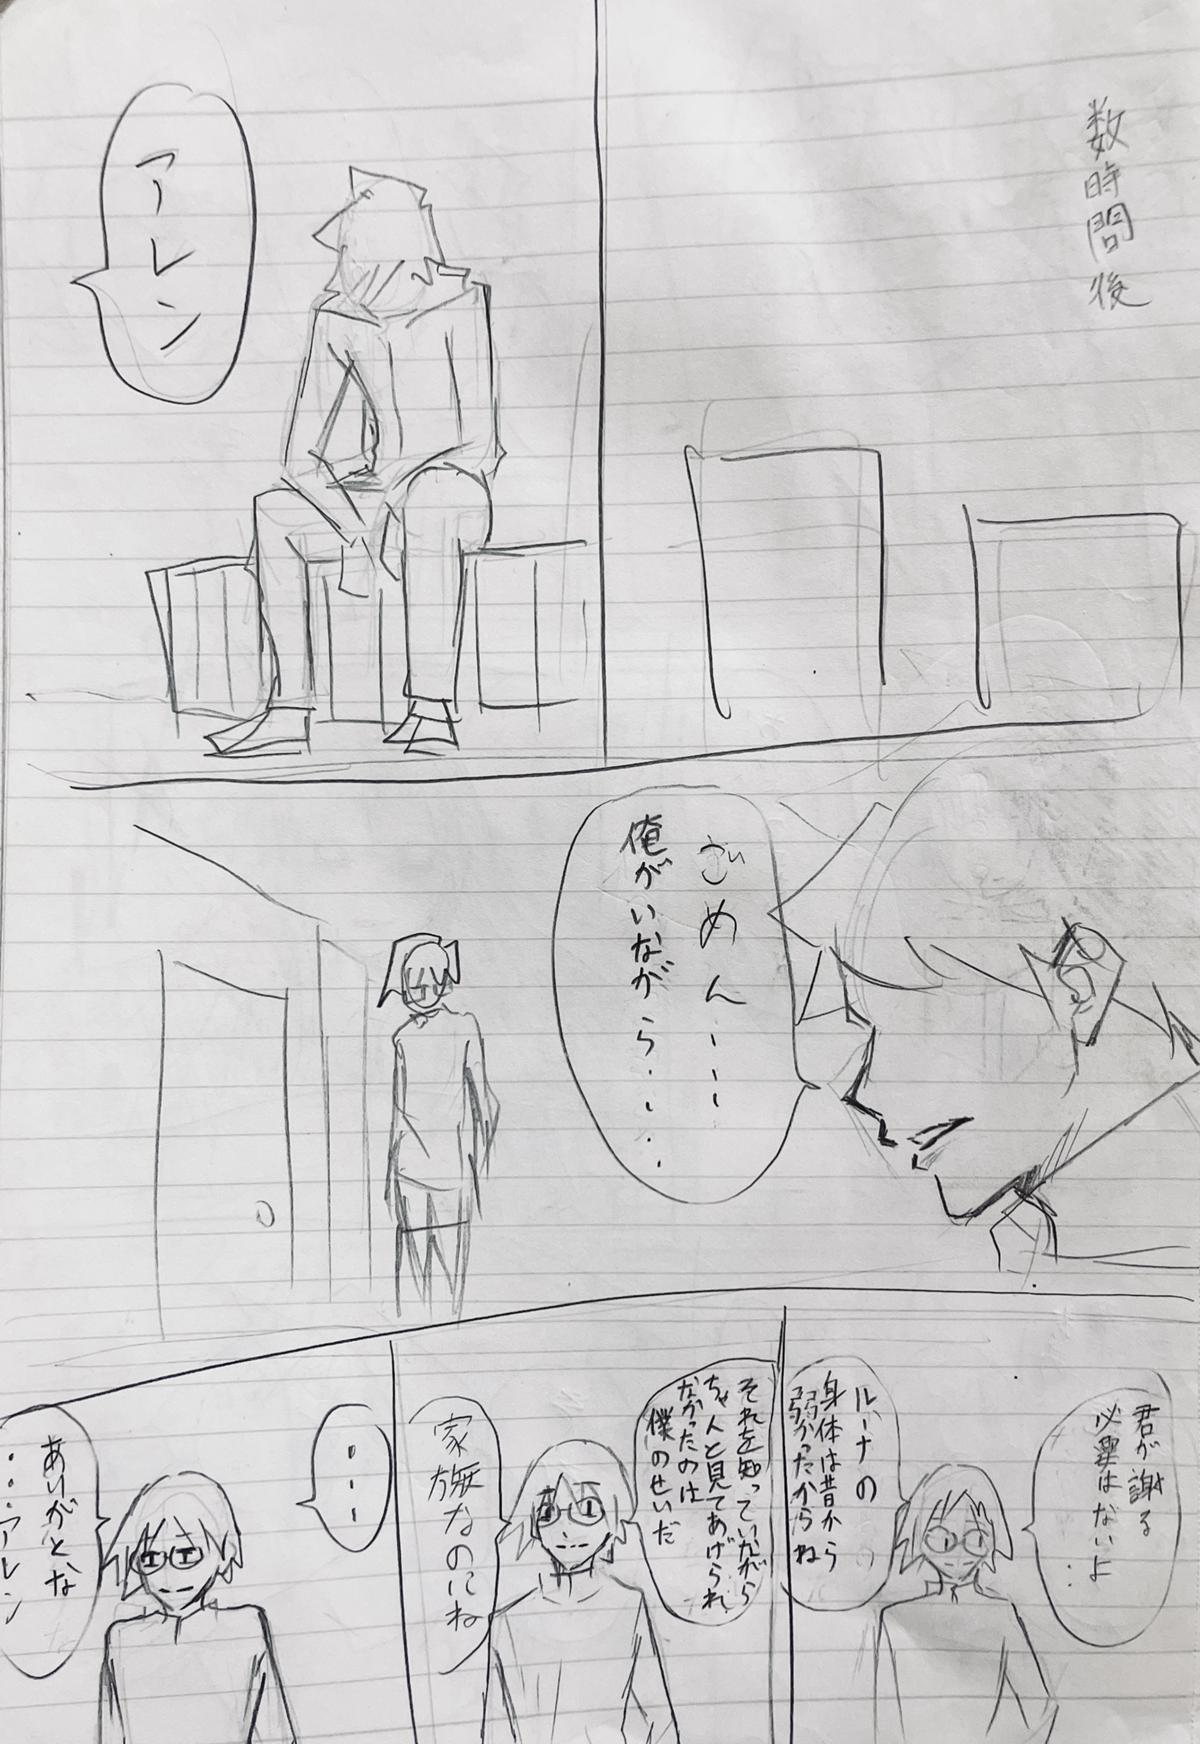 数時間後
アレン
ごめん・・・・
俺がいながら・・・・
君が謝る
必要はないよ・・
ルーナの
身体は昔から
弱かったからね
それを知っていながら
ちゃんと見てあげられ
なかったのは
僕のせいだ
家族なのにね
・・・
ありがとな
・・・アレン